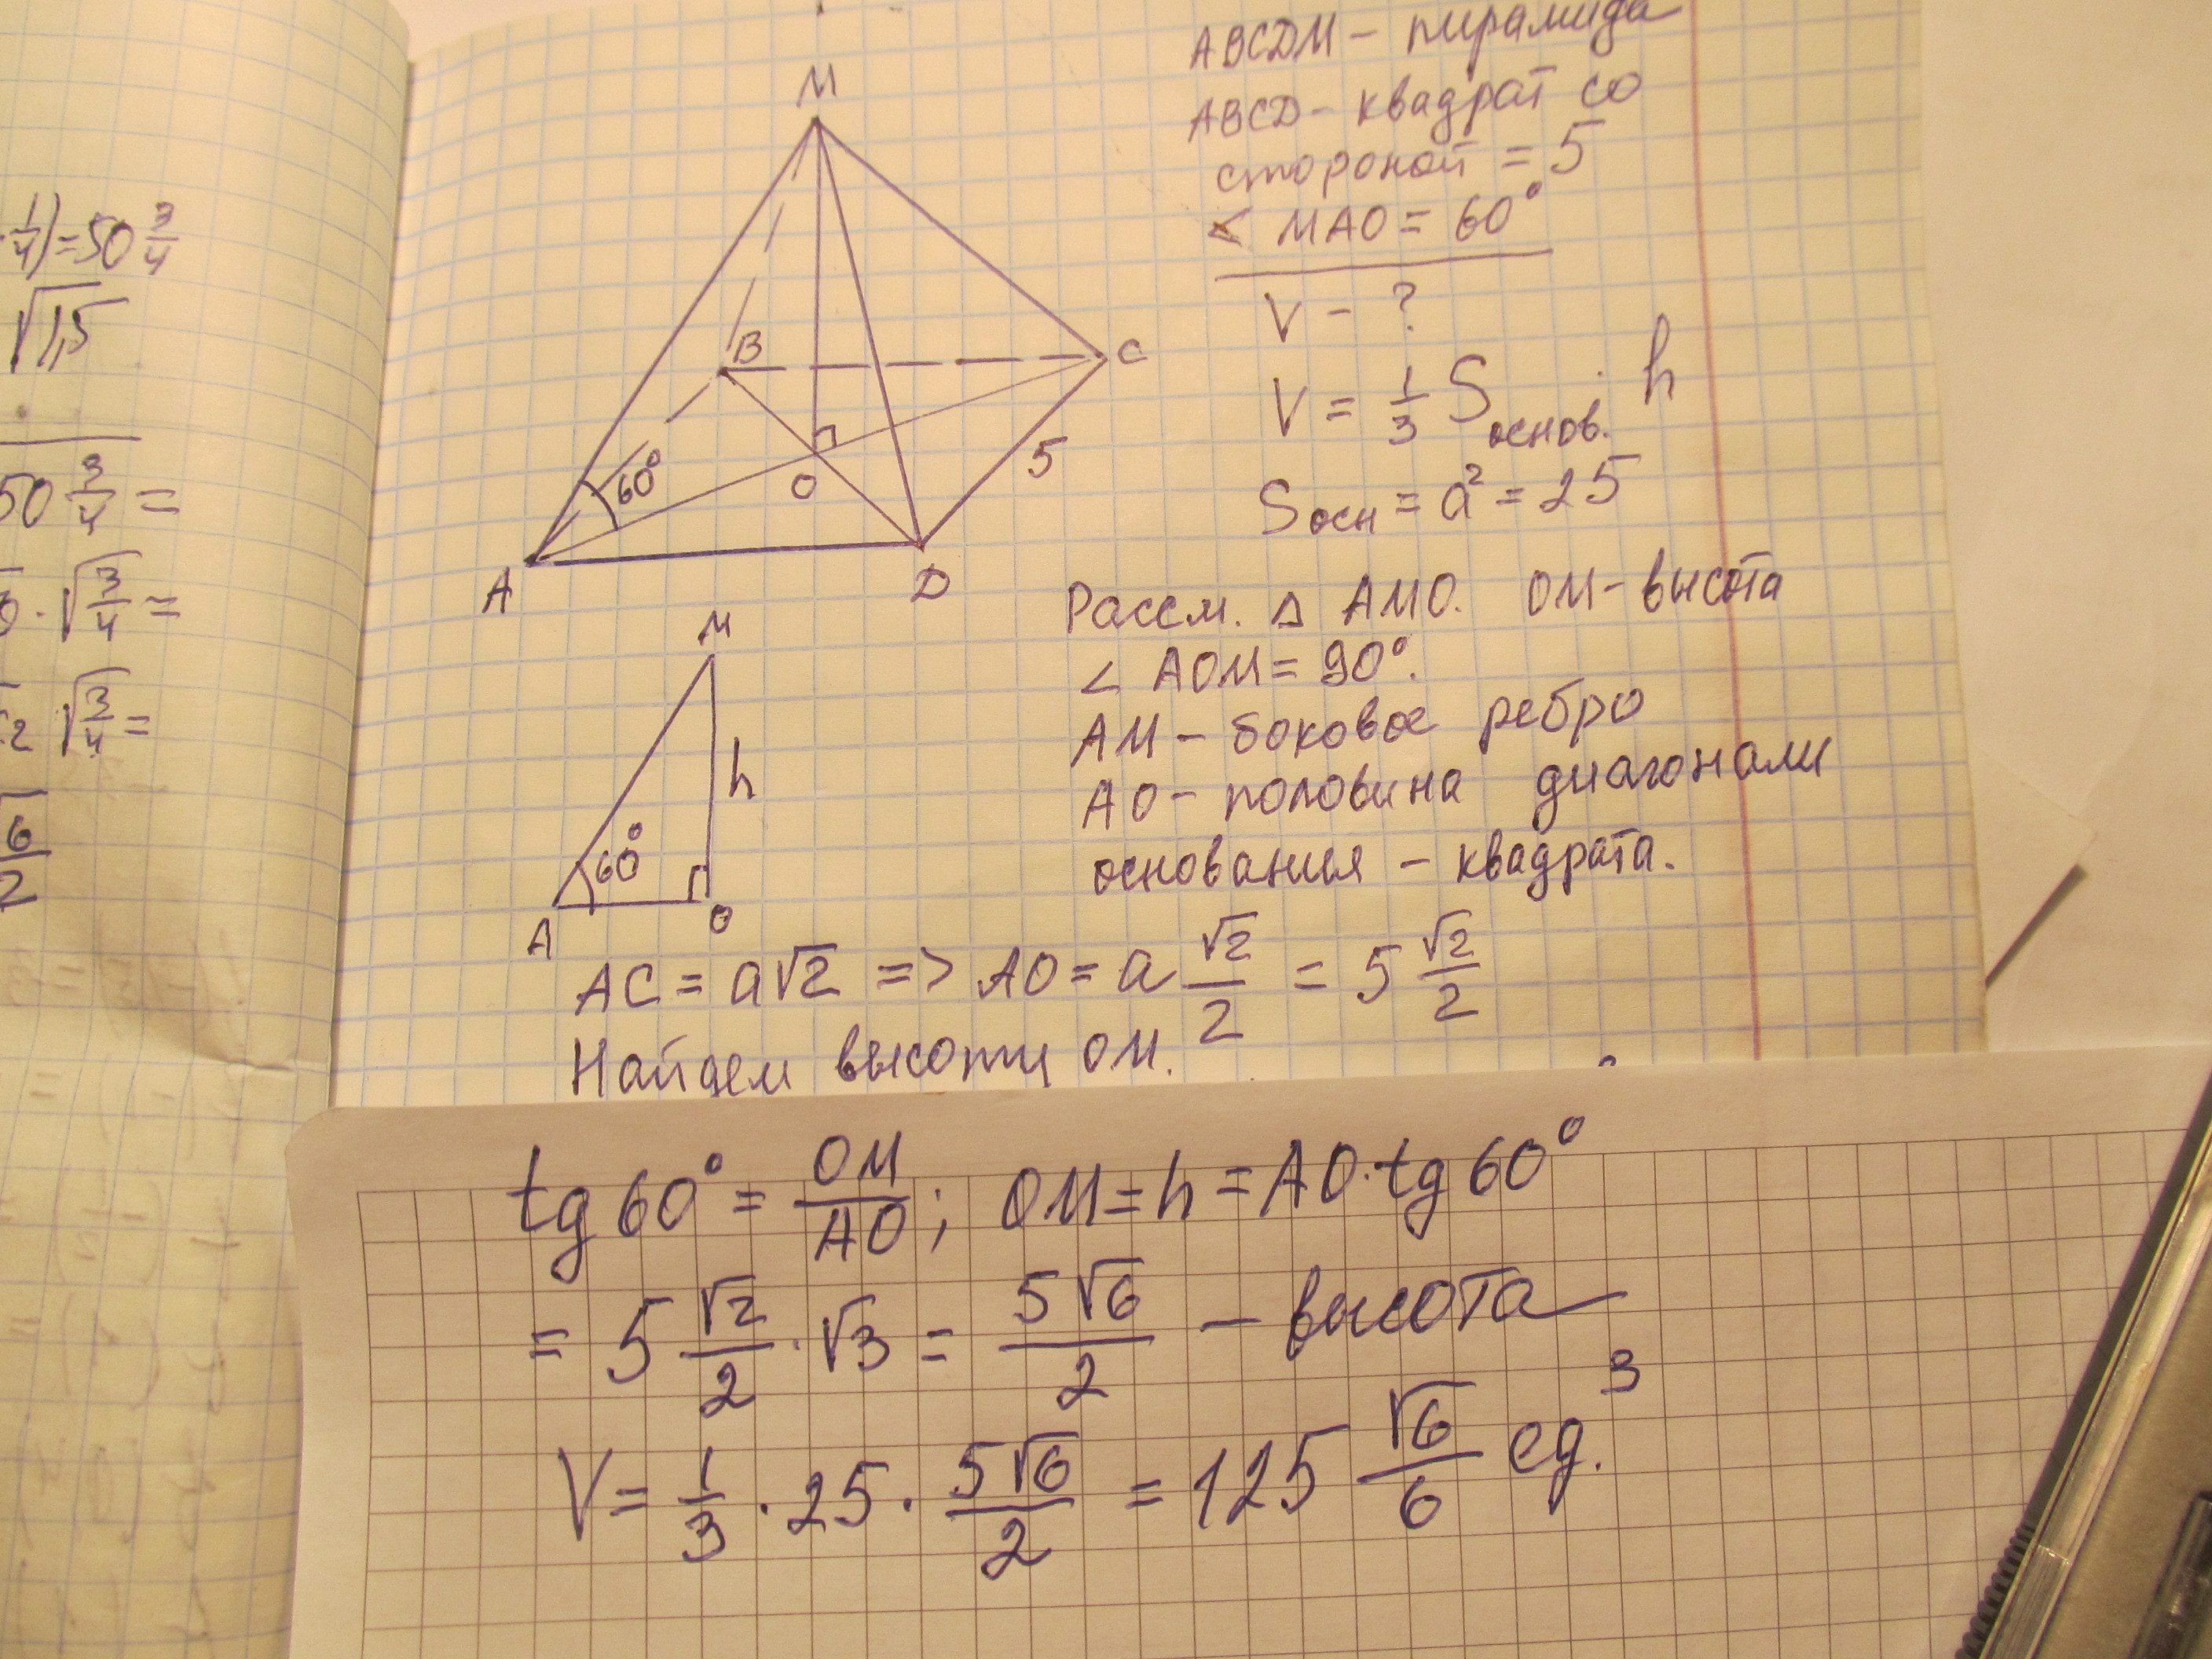 · 1/4) = 50 3/4
√1,5
50 3/4 =
· √(3/4) =
√(3/4) =
6/2
M
B
C
60°
O
5
A
D
M
h
60°
A
O
ABCDM – пирамида
ABCD – квадрат со
стороной = 5
< MAO = 60°
V – ?
V = 1/3 Sоснов. · h
Sосн = a² = 25
Рассм. Δ AMO. OM – высота
< AOM = 90°.
AM – боковое ребро
AO – половина диагонали
основания – квадрата.
AC = a√2 => AO = a √2/2 = 5 √2/2
Найдем высоту OM.
tg 60° = OM/AO ; OM = h = AO · tg 60°
= 5 √2/2 · √3 = 5√6/2 – высота
V = 1/3 · 25 · 5√6/2 = 125 √6/6 ед.³